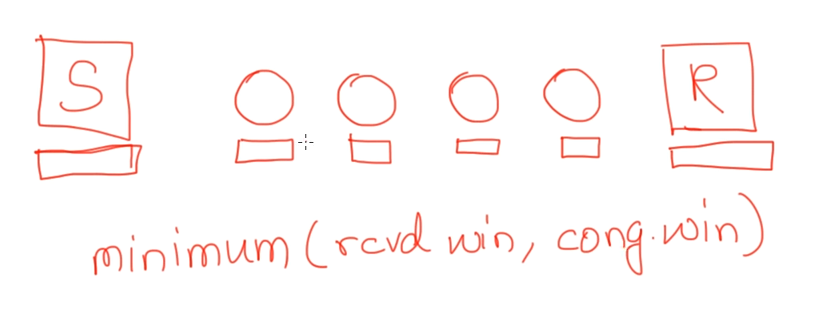 S R
minimum (rcvd win, cong.win)